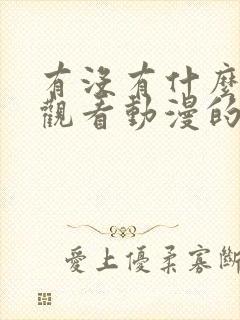 有沒有什麼
觀看動漫的
愛上優柔寡斷